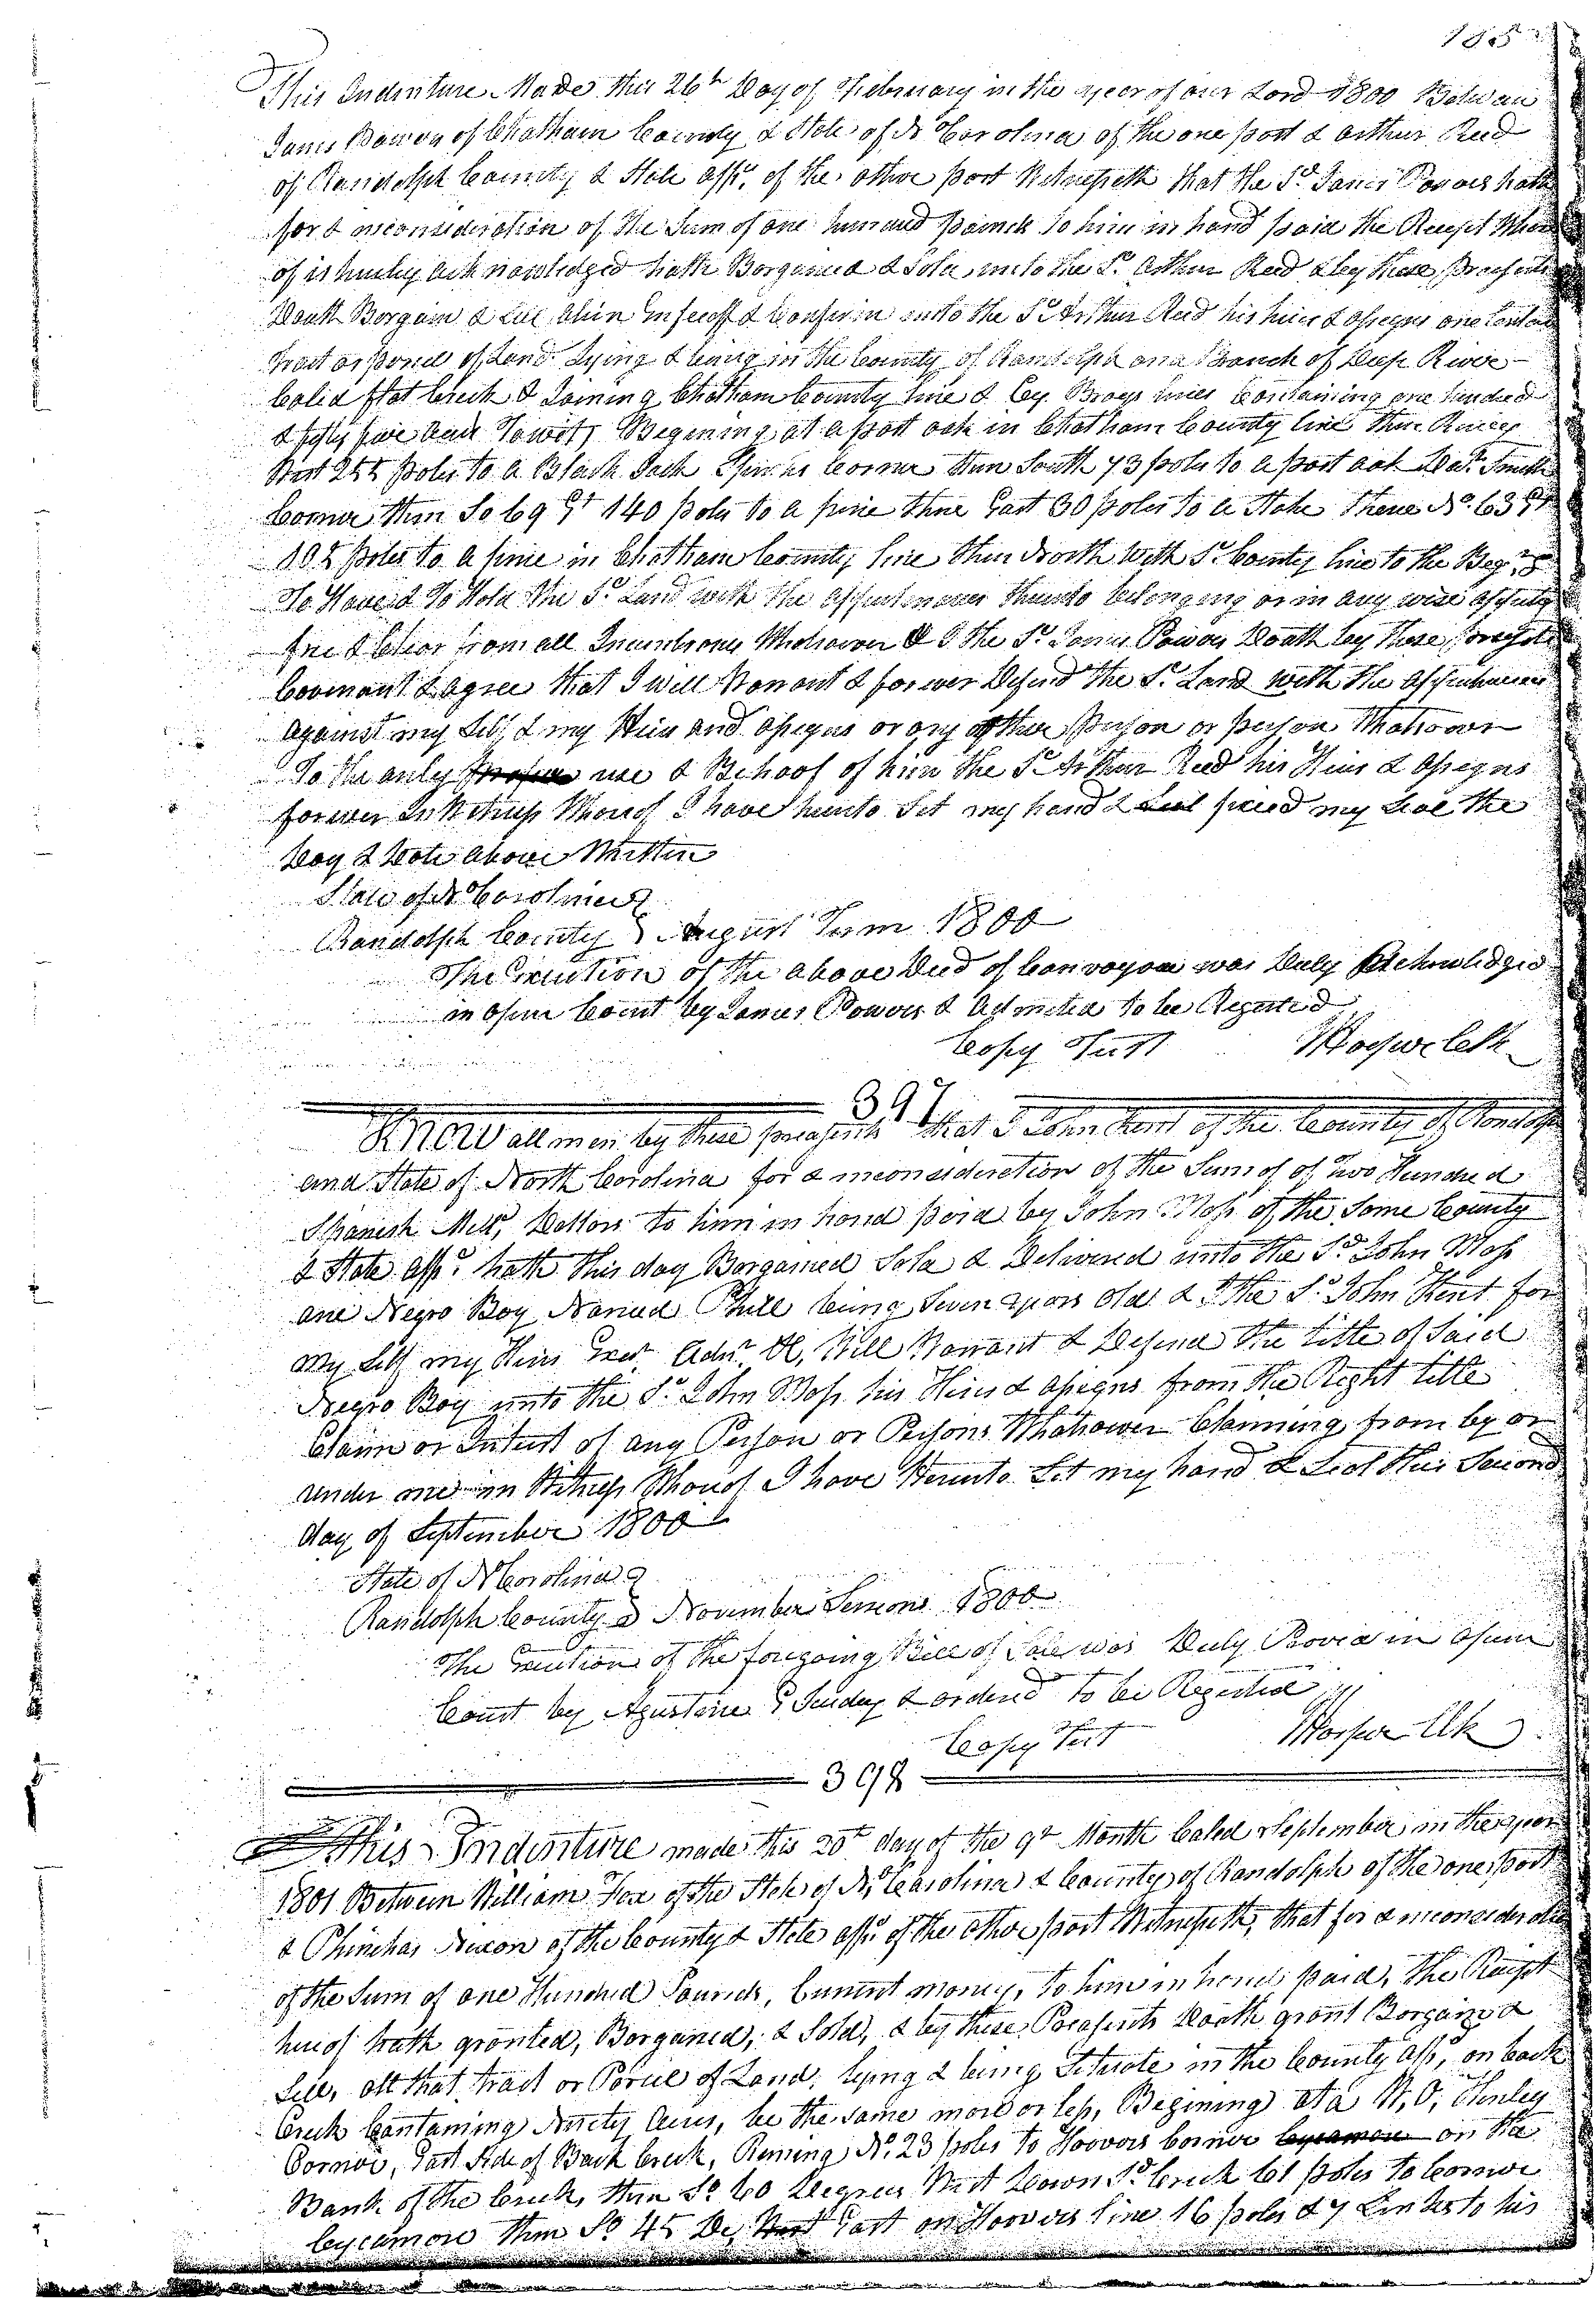 185
This Indenture Made this 26th Day of February in the year of our Lord 1800 Betwen
James Powers of Chatham County & State of No Carolina of the one part & Arthur Reed
of Randolph County & State affd. of the other part Witnesseth that the Sd. James Powers hath
for & inconsideration of the Sum of one hundred pounds to him in hand paid the Receipt Where
of is hereby acknowledged hath Borgained & Sold unto the Sd. Arthur Reed & by these presents
Doath Borgain & Sell Infeoff & Confirm unto the Sd Arthur Reed his heirs & assigns one Certain
tract or parcel of Land Lying & being in the County of Randolph on a Branch of Deep River
Called flat Creek & Joining Chatham County line & lines Containing one hundred
& fifty five Acres Towit, Begining at a post oak in Chatham County line then Runing
West 255 poles to a Black Jack Corner then South 73 poles to a post oak Smith
Corner then So 69 Et 140 poles to a pine thence East 30 poles to a Stake thence No. 63 Et
102 poles to a pine in Chatham County line then North with Sd County line to the Begg.
To Have & To Hold the Sd. Land with the appurtenances thereto belonging or in any wise
free & Clear from all Incumbrances Whatsoever & I the Sd. James Powers Doath by these presents
Covenant & agree that I will Warrant & forever Defend the Sd. Land with the appurtenances
against my Self & my Heirs and assigns or any other person or person Whatsoever
To the only use & Behoof of him the Sd. Arthur Reed his Heirs & assigns
forever In Witness Whereof I have hereunto Set my hand & Seal fixed my Seal the
Day & Date above Written
State of No Carolina
Randolph County August Term 1800
The Execution of the above Deed of Conveyance was Duly Acknowledged
in open Court by James Powers & Admitted to be Registered
Copy Test Harper Clk
397
KNOW all men by these presents that I John Kent of the County of Randolph
and State of North Carolina for & inconsideration of the Sum of of Two Hundred
Spanish Milld, Dollors to him in hand paid by John Moss of the Same County
& State affd. hath this day Borgained Sold & Delivered unto the Sd. John Moss
one Negro Boy Named Phill being Seven years old & I the Sd. John Kent for
My Self my Heirs Exer. Admr. &c, Will Warrant & Defend the title of Said
Negro Boy unto the Sd. John Moss his Heirs & assigns from the Right title
Claim or Interest of any Person or Persons Whatsoever Claiming from by or
under me in Witness Whereof I have Hereunto Set my hand & Seal this Second
day of September 1800
State of N Carolina
Randolph County November Sessions 1800
The Execution of the foregoing Bill of Sale was Duly Proved in open
Court by & ordered to be Registered
Copy Test Harper Clk
398
This Indenture made this 20th day of the 9th Month Caled September in the year
1801 Between William Fox of the State of No. Carolina & County of Randolph of the one part
& Phinehas Nixon of the County & State affd. of the other part Witnesseth, that for & inconsideration
of the Sum of one Hundred Pounds, Current money, to him in hand paid, the Receipt
hereof hath granted, Borganed, & Sold, & by these Presents Doath grant Borgain &
Sell, all that tract or Parcel of Land, lying & being Situate in the County affd, on back
Creek Containing Ninety Acres, be the same more or less, Begining at a W, O, Henley
Corner, East Side of Back Creek, Runing No. 23 poles to Hoovers Corner Cycamore on the
Bank of the Creek, then So. 60 Degrees West Down Sd. Creek 61 poles to Corner
Cycamore then So 45 De, West East on Hoovers line 16 poles & 7 Links to his